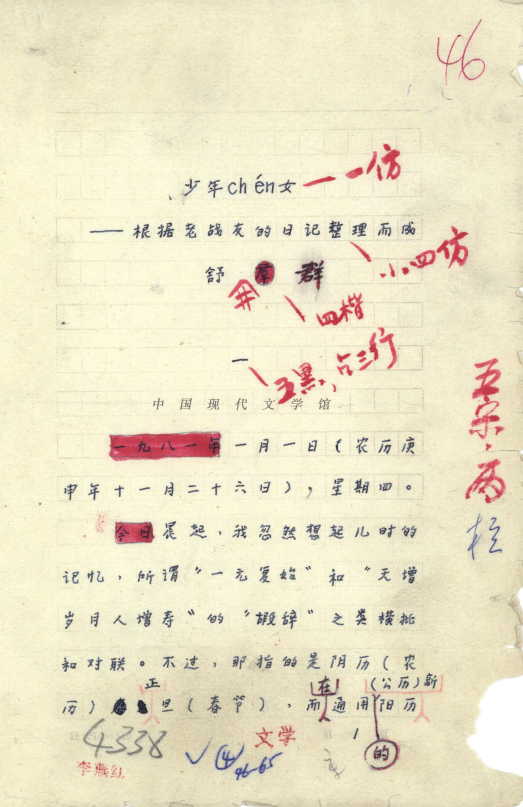 46
少年chén女 一一仿
——根据老战友的日记整理而成
小四仿
舒群
四楷
一
五黑,占三行
中国现代文学馆
五宋·两栏
一九八一年一月一日(农历庚
申年十一月二十六日),星期四。
今日晨起,我忽然想起儿时的
记忆,所谓“一元复始”和“天增
岁月人增寿”的“嘏辞”之类横批
和对联。不过,那指的是阴历(农
正 在 (公历)新
历)旦(春节),而通用阳历
的
4338
文学
李燕红
④
46-65